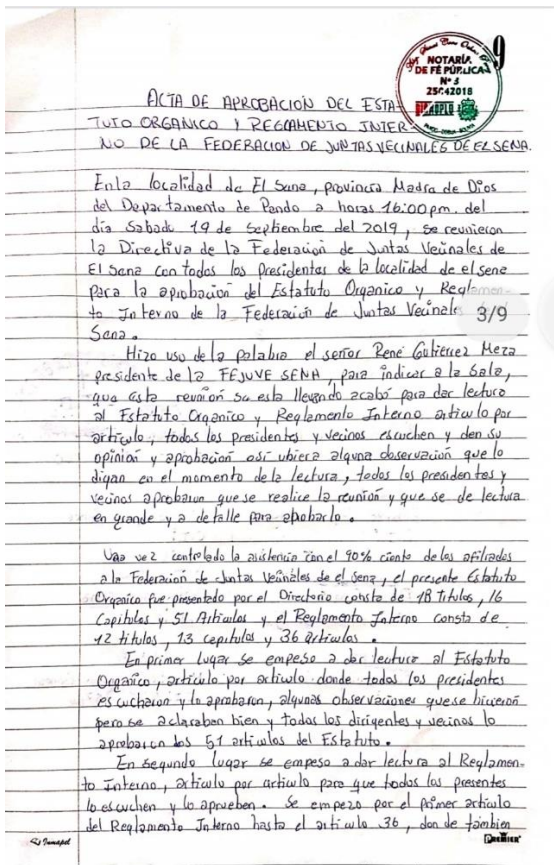 9
NOTARÍA
DE FÉ PÚBLICA
Nº 3
25042018
ACTA DE APROBACION DEL ESTA-
TUTO ORGANICO Y REGLAMENTO INTER-
NO DE LA FEDERACION DE JUNTAS VECINALES DE EL SENA.
En la localidad de El Sena, provincia Madre de Dios
del Departamento de Pando a horas 16:00 pm. del
día Sabado 19 de Septiembre del 2019, se reunieron
la Directiva de la Federación de Juntas Vecinales de
El Sena con todos los Presidentes de la localidad de el sena
para la aprobación del Estatuto Organico y Reglamen-
to Interno de la Federación de Juntas Vecinales
3/9
Sena.
Hizo uso de la palabra el señor René Gutierrez Meza
presidente de la FEJUVE SENA, para indicar a la Sala,
que esta reunión se esta llevando acabó para dar lectura
al Estatuto Organico y Reglamento Interno articulo por
articulo, todos los presidentes y vecinos escuchen y den su
opinión y aprobación asi ubiera alguna observación que lo
digan en el momento de la lectura, todos los presidentes y
vecinos aprobaron que se realice la reunión y que se de lectura
en grande y a detalle para aprobarlo.
Una vez controlado la asistencia con el 90% ciento de los afiliados
a la Federación de Juntas Vecinales de el sena, el presente Estatuto
Organico fue presentado por el Directorio consta de 18 Titulos, 16
Capitulos y 51 Articulos y el Reglamento Interno consta de
12 titulos, 13 capitulos y 36 articulos.
En primer lugar se empeso a dar lectura al Estatuto
Organico, articulo por articulo donde todos los presidentes
escucharon y lo aprobaron, algunas observaciones que se hicieron
pero se aclaraban bien y todos los dirigentes y vecinos lo
aprobaron los 51 articulos del Estatuto.
En segundo lugar se empeso a dar lectura al Reglamen-
to Interno, articulo por articulo para que todos los presentes
lo escuchen y lo aprueben. Se empezo por el primer articulo
del Reglamento Interno hasta el articulo 36, donde tambien
Inmapel
PREMIER